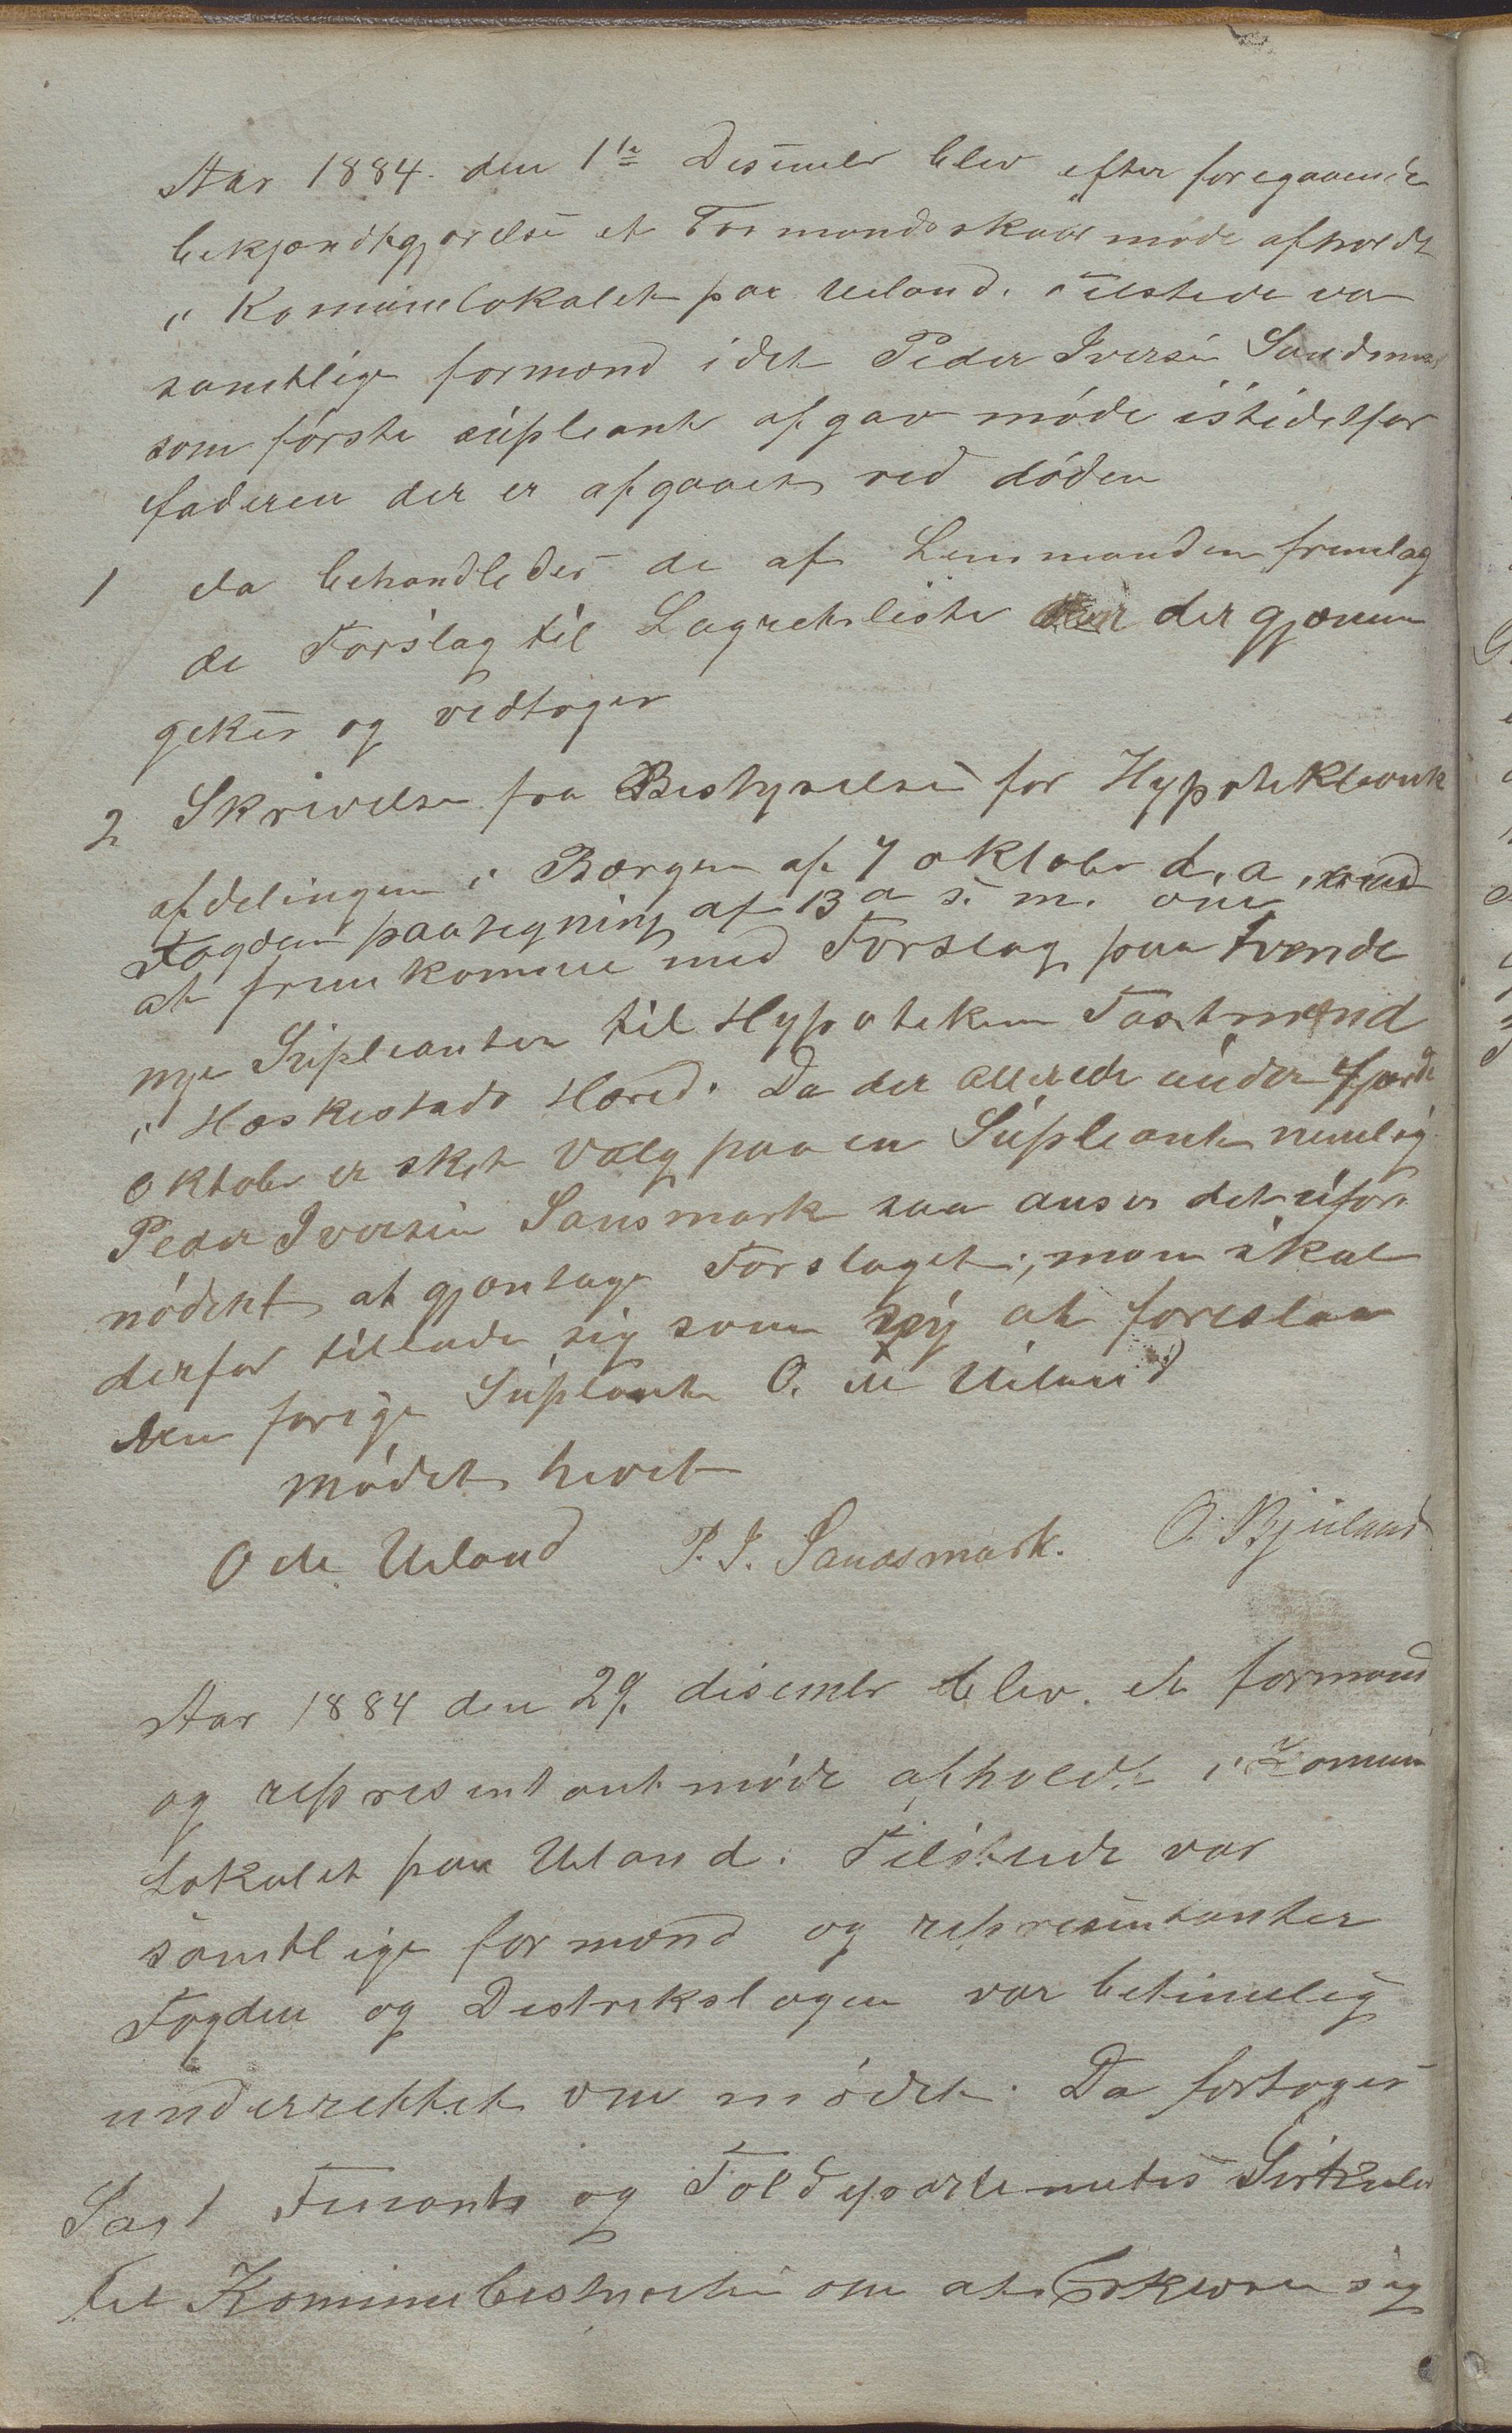 Aar 1884. den 1te Desember blev efter foregaaende
bekjendtgjørelse et Formandsskabs møde afholdt
i Komunelokalet paa Ueland. Tilstede var
samtlige formænd idet Peder Iversen Sandsmark
som første supleant afgav møde istedetfor
faderen der er afgaaet ved døden
1 da behandledes de af Lensmanden fremlag
de Forslag til Lagretsliste der gjenem
gikes og vedtoges
2 Skrivelse fra Bestyrelsen for Hypotekbank
afdelingen i Bergen af 7 oktober d. a. med
Fogdens paategning af 13 a s. m. om
at fremkomme med Forslag paa tvende
nye Supleanter til Hypoteken Taxtmænd
i Heskestads Hered. Da der allerede under 4 forde
Oktober er sket Valg paa en Supleant nemlig
Peder Iversen Sansmark saa anses det ufor
nødent at gjentage Forslaget, man skal
derfor tillade sig som ny at foreslaa
den forige Supleant O. M Ueland
mødet hevet
O M. Ueland P. I. Sandsmark. O. Bjuland
Aar 1884 den 29. desember blev et formand
og representantmøde afholdt i Komun
Lokalet paa Ueland. Tilstede var
samtlige formænd og representanter
Fogden og Distrikslægen var betimelig
underrettet om mødet. Da fortoges
Sag 1 Finants og Toldepartemetes Sirkulær
til Komunebestyrelsen om at Erklære sig